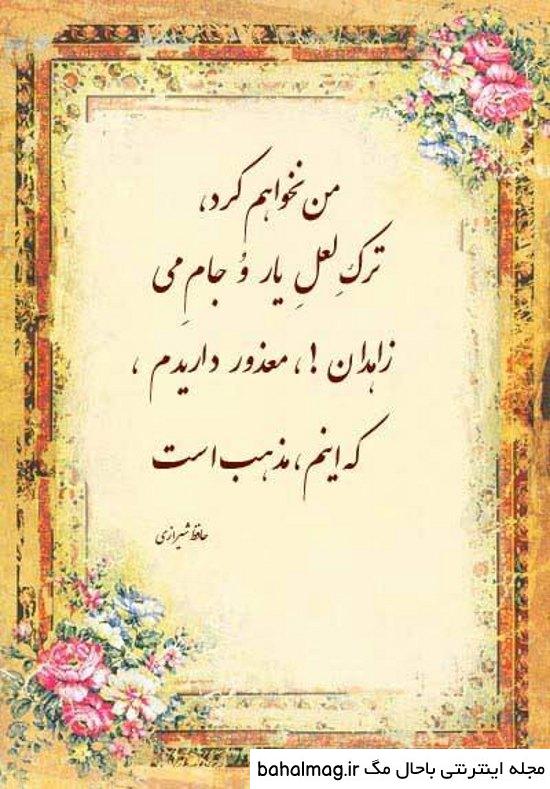 من نخواهم کرد،
ترکِ لعلِ یار وُ جامِ می
زاهدان !، معذور داریدم ،
که اینم، مذهب است
حافظ شیرازی
مجله اینترنتی باحال مگ bahalmag.ir